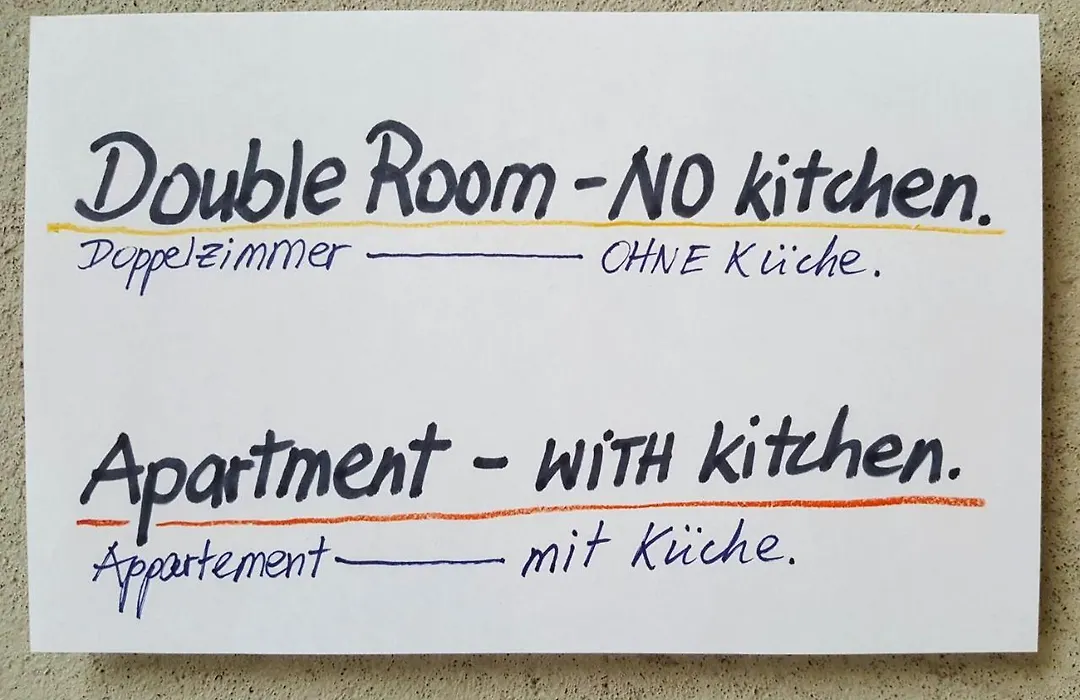 Double Room - NO kitchen.
Doppelzimmer — OHNE Küche.
Apartment - WiTH kitchen.
Appartement — mit Küche.